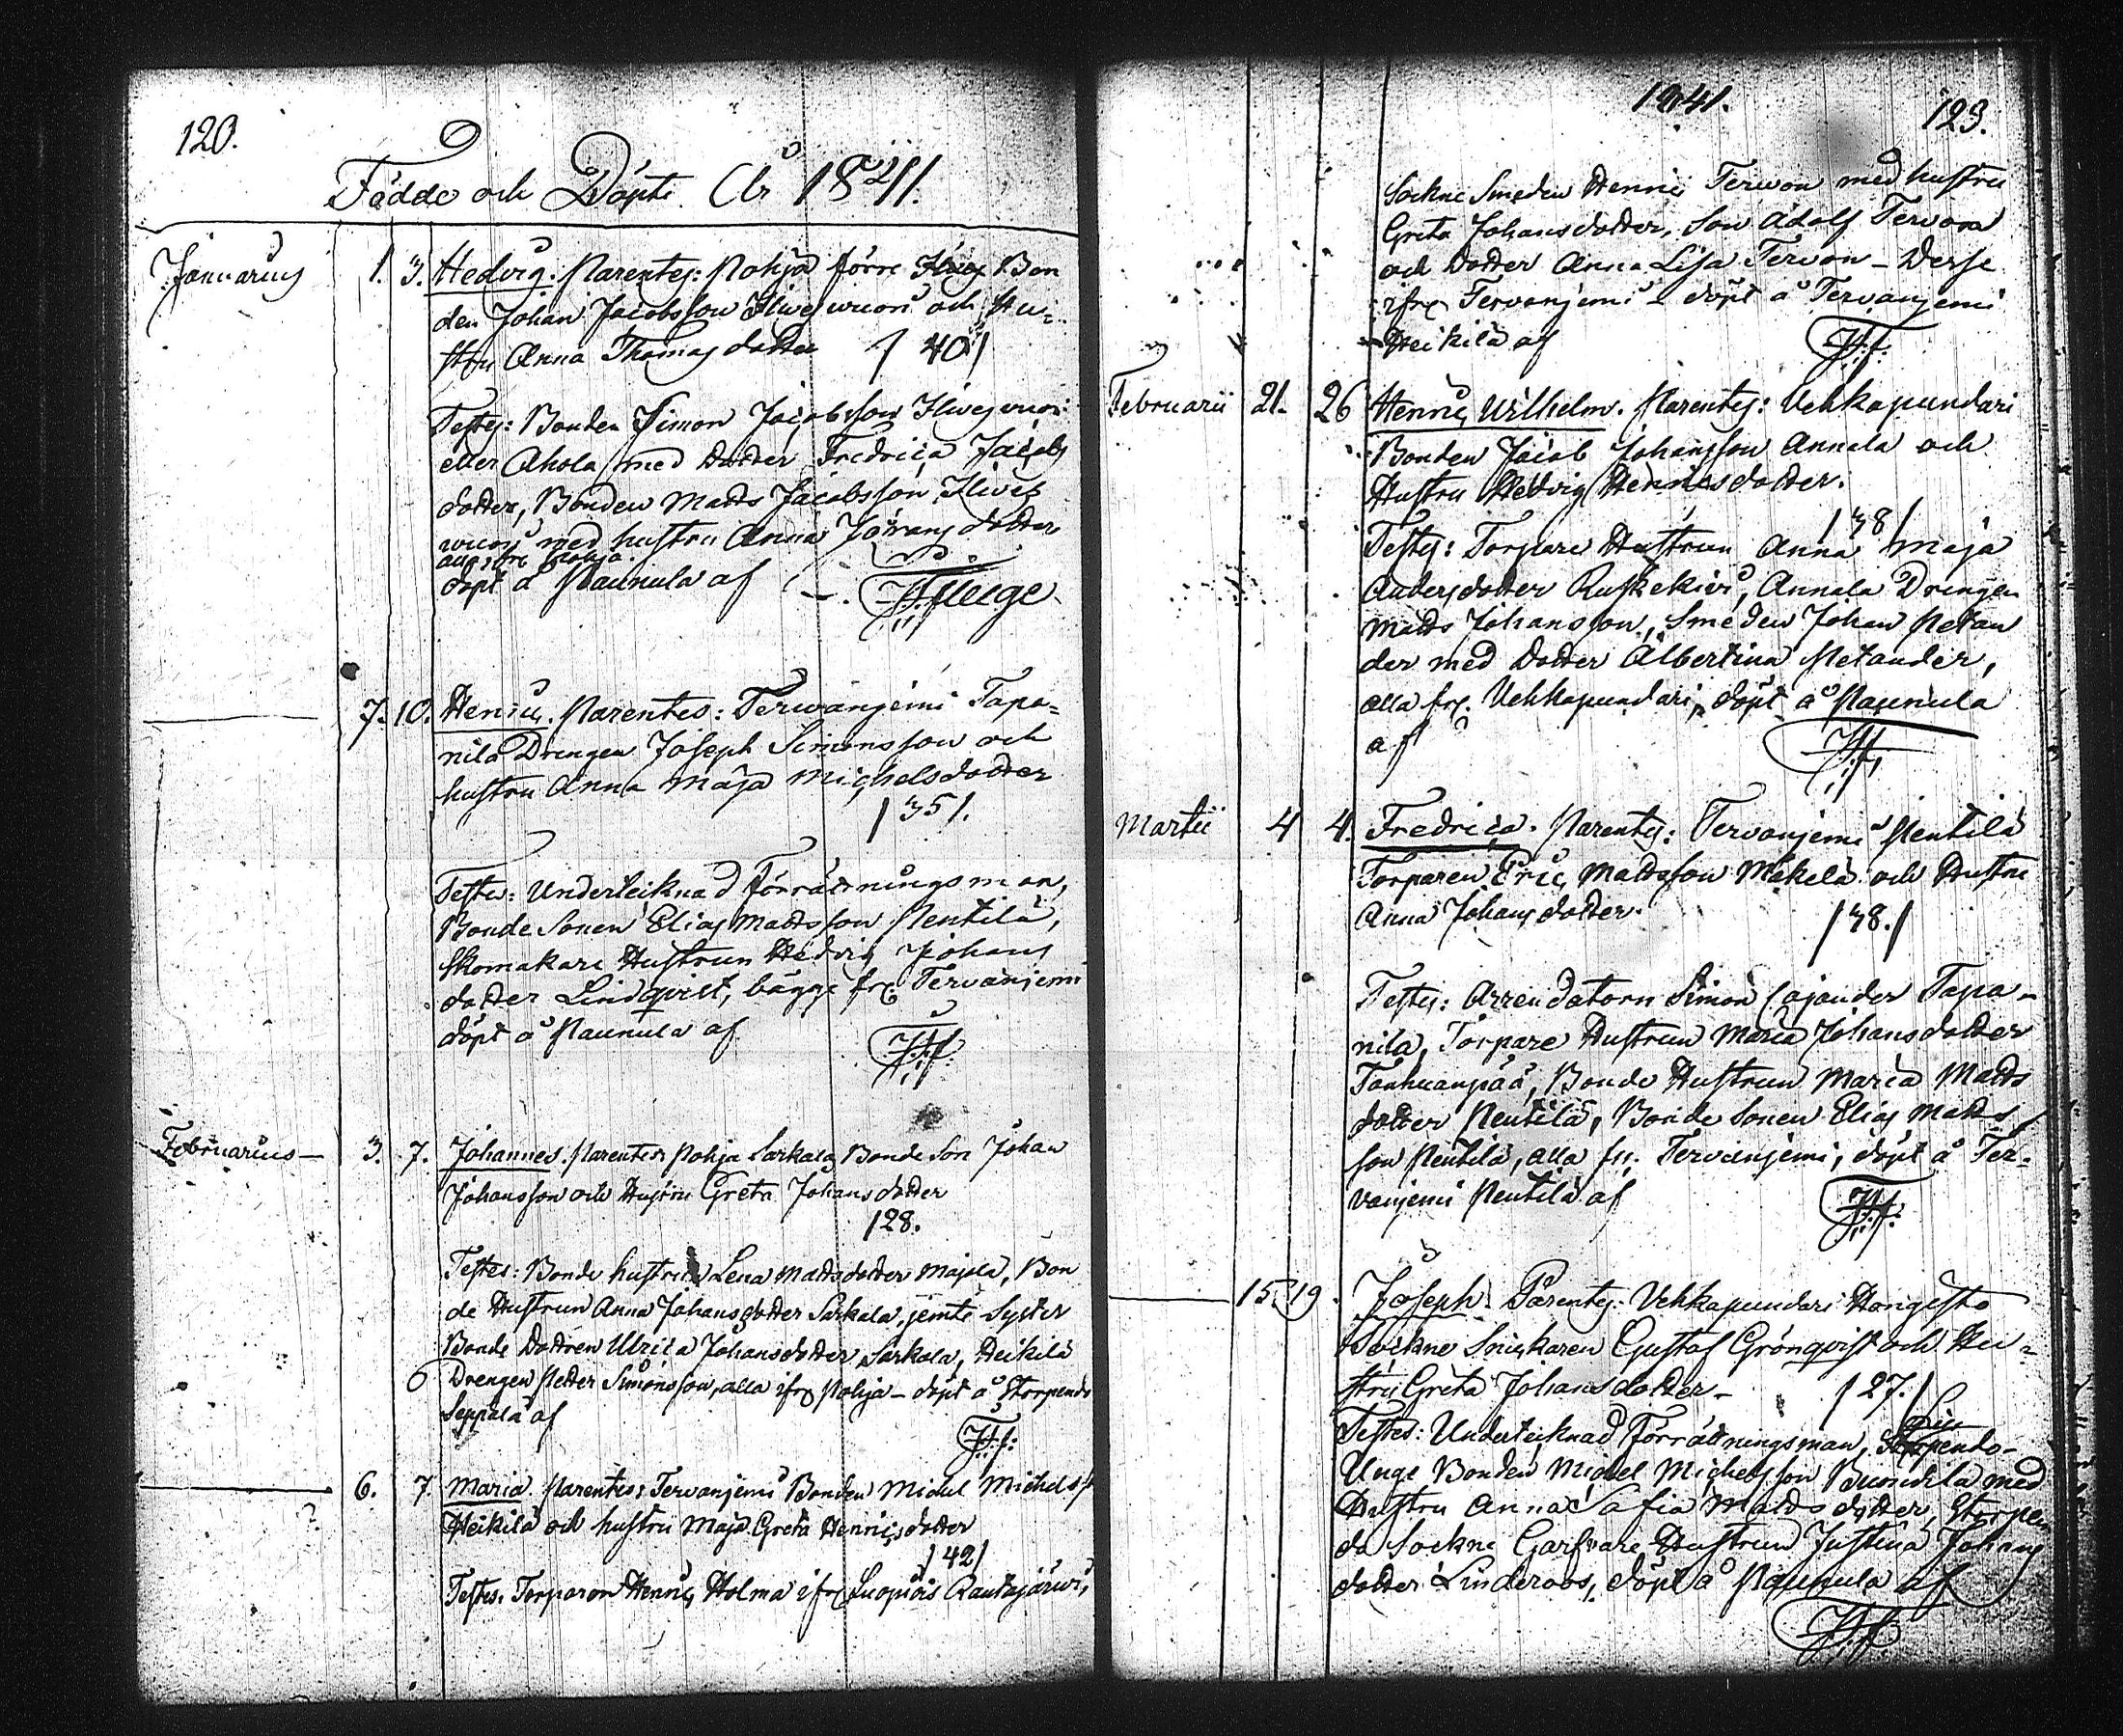 120.
Födde och Döpte År 1841.
Januarius 1. 3. Hedvig. Parentes: Pohja förre Bon
den Johan Jacobsson Ilwesvuori och Hu=
stru Anna Thomasdotter / 40 /
Testes: Bonden Simon Jacobsson Ilwesvuori
eller Ahola med Dotter Fredrica Jacobs
dotter, Bonden Matts Jacobsson Ilwes
vuori med hustru Anna Göransdotter
alla ifr. Pohja.
döpt å Paunula af
7. 10. Henric. Parentes: Terwanjemi Tapa=
nila Drengen Joseph Simonsson och
hustru Anna Maja Michelsdotter
/ 35 /.
Testes: Underteiknad Förrättningsman,
Bonde Sonen Elias Mattsson Pentilä,
Skomakare Hustrun Hedvig Johans
dotter Lindqvist, bägge fr. Tervanjemi
döpt å Paunula af
Februarius 3. 7. Johannes. Parentes Pohja Sarkala Bonde Son Johan
Johansson och Hustru Greta Johansdotter
/ 28.
Testes: Bonde hustrun Lena Mattsdotter Majala, Bon
de Hustrun Anna Johansdotter Sarkala, jemte Syster
Bonde Dottren Ulrica Johansdotter Sarkala, Heikilä
Drengen Petter Simonsson, alla ifr. Pohja – döpt å Storpendo
Seppälä af
6. 7 Maria. Parentes: Tervanjemi Bonden Michel Michelsson
Heikilä och hustru Maja Greta Henricsdotter
/ 42 /
Testes: Torparen Henric Holma ifr. Luopiois Rautajärwi,
1841. 123.
Sockne Smeden Henric Tervon med hustru
Greta Johansdotter, Son Adolf Tervon
och Dotter Anna Lisa Tervon – Desse
ifr. Tervanjemi – döpt å Tervanjemi
Heikilä af
Februarii 21. 26 Henric Wilhelm. Parentes: Vehkapundari
Bonden Jacob Johansson Annala och
Hustru Hedvig Henricsdotter.
/ 38 /
Testes: Torpare Hustrun Anna Maja
Andersdotter Ruskekivi, Annala Drengen
Matts Johansson, Smeden Johan Petan
der med Dotter Albertina Petander,
alla fr. Vehkapundari, döpt å Paunula
af
Martii 4 4. Fredrica. Parentes: Tervanjemi Pentilä
Torparen Eric Mattsson Mäkelä och Hustru
Anna Johansdotter.
/ 38. /
Testes: Arrendatorn Simon Cajander Tapa-
nila, Torpare Hustrun Maria Johansdotter
Tanhuanpää, Bonde Hustrun Maria Matts
dotter Pentilä, Bonde Sonen Elias Matts
son Pentilä, alla fr. Tervanjemi, döpt å Ter=
vanjemi Pentilä af
15. 19. Joseph. Parentes: Vehkapundari Hongisto
Sockne Snickaren Gustaf Grönqvist och Hu=
stru Greta Johansdotter – / 27. /
Testes: Underteiknad Förrättningsman,
Unge Bonden Michel Michelsson Buondila med
Hustru Anna Safia Mattsdotter, Storpen
do Sockne Garfvare Hustrun Justina Johans
dotter Linderoos, döpt å Paunula af